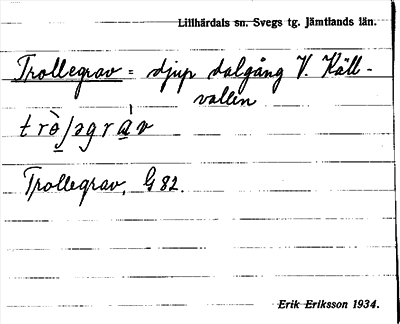 Lillhärdals sn. Svegs tg. Jämtlands län.
Trollegrav = djup dalgång V. Käll-
vallen
Trollegrav, G 82.
Erik Eriksson 1934.